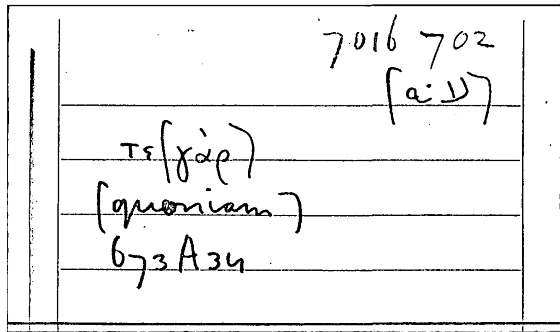 7016 702
(a: ν)
τε (γὰρ)
(quoniam)
673A34